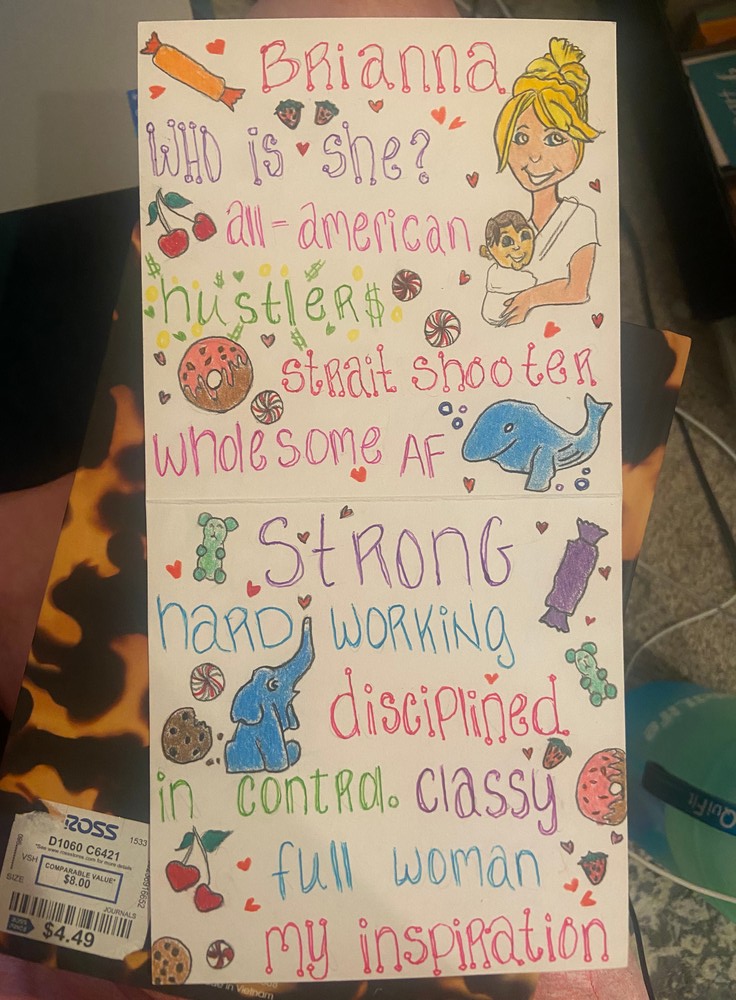 BRianna
WHO is she?
all-american
hustleR$
stRait shooteR
wholesome AF
StRONG
haRD WORKING
disciplined
in contRol. classy
full woman
my inspiRation
ROSS
D1060 C6421
1533
VSH
COMPARABLE VALUE*
$8.00
SIZE
JOURNALS
$4.49
in Vietnam
QuiFit